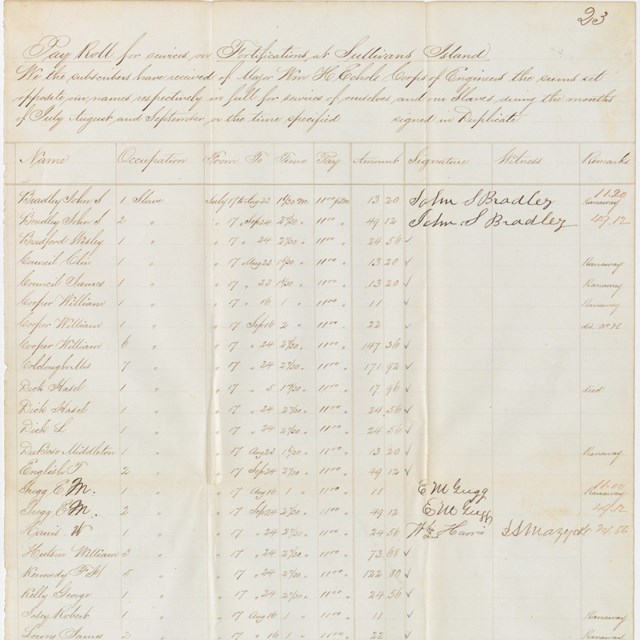 23
Pay Roll for services on Fortifications at Sullivans Island
We the subscribers have received of Major Wm H. Echols Corps of Engineers the sums set
opposite our names respectively in full for services of ourselves and our Slaves during the months
of July August and September or the time specified signed in Duplicate
Name Occupation From To Time Pay Amount Signature Witness Remarks
Bradley John S 1 Slave July 17th Aug 22 13 20 John S Bradley 13.20 Runaway
Bradley John S 2 " " 17 Sep 24 11.00 49 12 John S Bradley 49.12
Bradford Wesley 1 " " 17 " 24 11.00 24 56
Council 1 " " 17 Aug 22 11.00 13 20 Runaway
Council James 1 " " 17 " 22 11.00 13 20 Runaway
Cooper William 1 " " 17 " 16 1 " 11.00 11 Runaway
Cooper William 1 " " 17 Sep 16 2 " 11.00 22
Cooper William 6 " " 17 " 24 11.00 147 36
7 " " 17 " 24 11.00 171 92
Dick Hasel 1 " " 17 " 5 11.00 17 96 died
Dick Hasel 1 " " 17 " 24 11.00 24 56
Dick L 1 " " 17 " 24 11.00 24 56
Middleton 1 " " 17 Aug 22 11.00 13 20 Runaway
English T 2 " " 17 Sep 24 11.00 49 12
Gregg E M. 1 " " 17 Aug 16 1 " 11.00 11 E M Gregg Runaway
Gregg E M. 2 " " 17 Sep 24 11.00 49 12 E M Gregg 49.12
Harris W 1 " " 17 " 24 11.00 24 56 Harris 24.56
William 3 " " 17 " 24 11.00 73 68
Kennedy 5 " " 17 " 24 11.00 122 80
Kelly George 1 " " 17 " 24 11.00 24 56
Robert 1 " " 17 Aug 16 1 " 11.00 11 Runaway
James 2 " " 17 " 16 1 " 11.00 22 Runaway